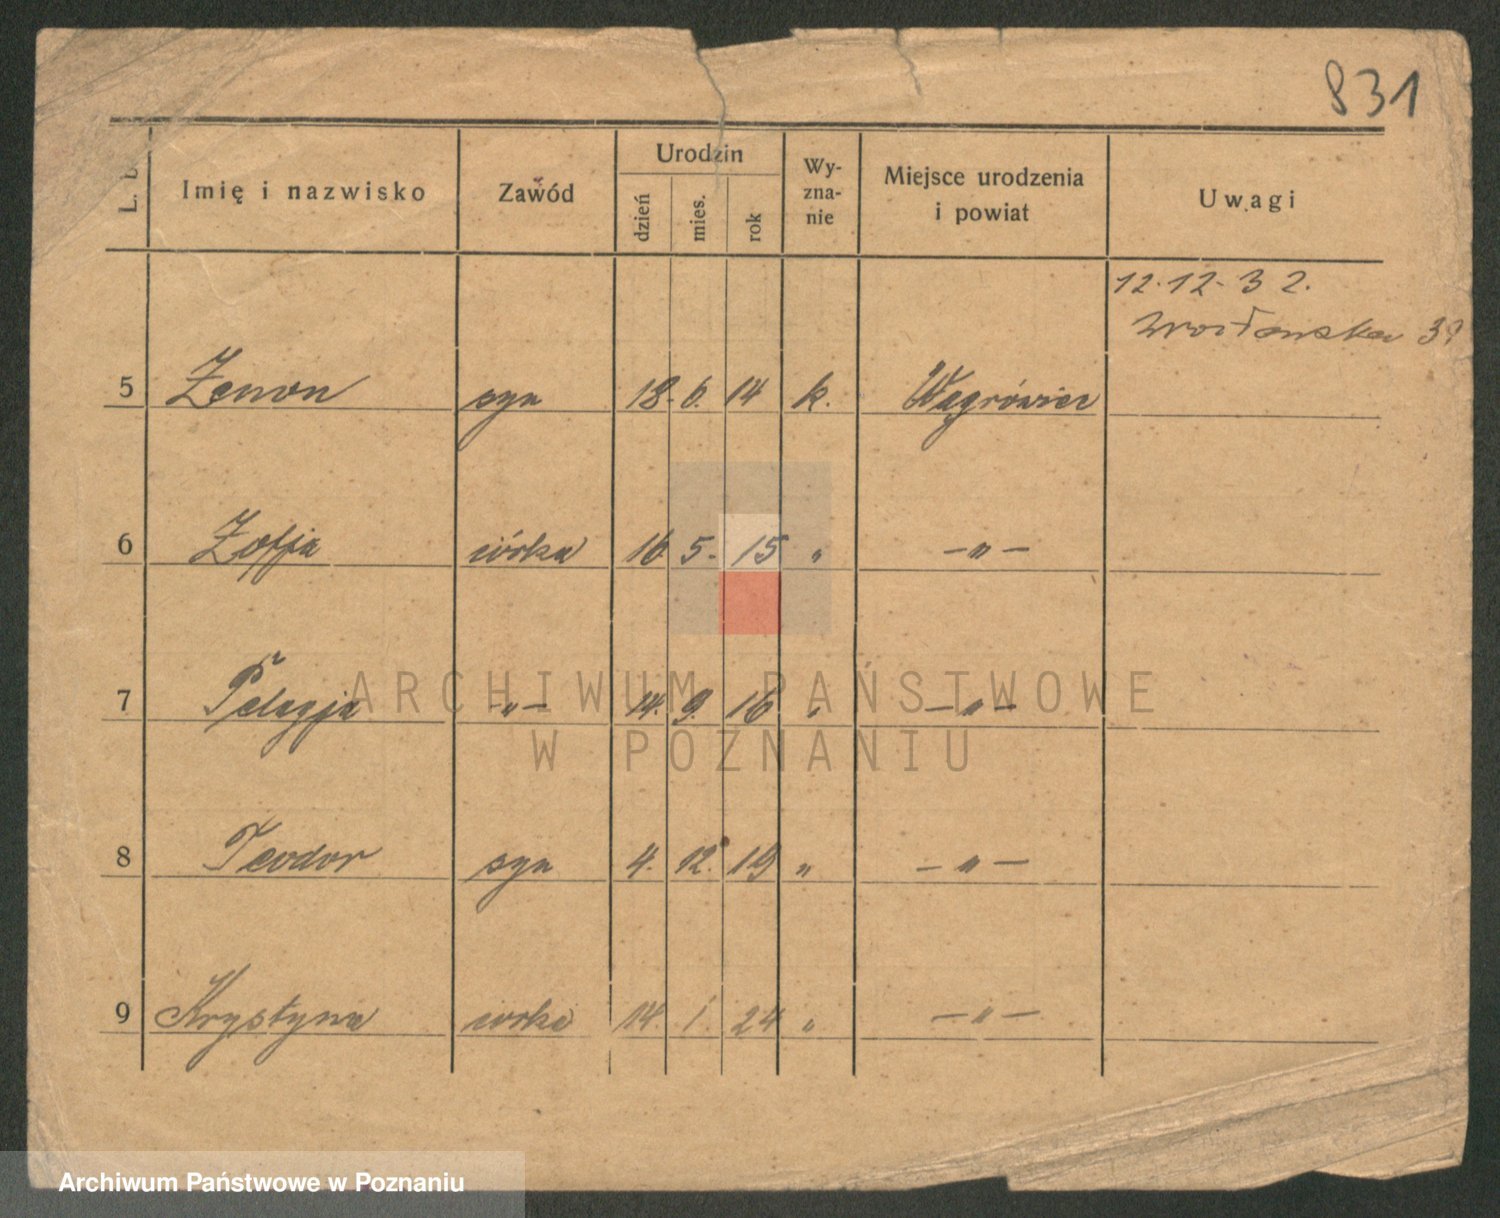 831
L. b.
Imię i nazwisko Zawód Urodzin dzień mies. rok Wy-zna-nie Miejsce urodzenia i powiat Uwagi
12.12.32.
5 Zenon syn 18. 6. 14 k. Wągrówiec
6 Zofja córka 16 5. 15 " -"-
7 Pelagja -"- 14. 9. 16 " -"-
8 Teodor syn 4. 12. 19 " -"-
9 Krystyna córka 14. 1. 24 " -"-
ARCHIWUM PAŃSTWOWE
W POZNANIU
Archiwum Państwowe w Poznaniu